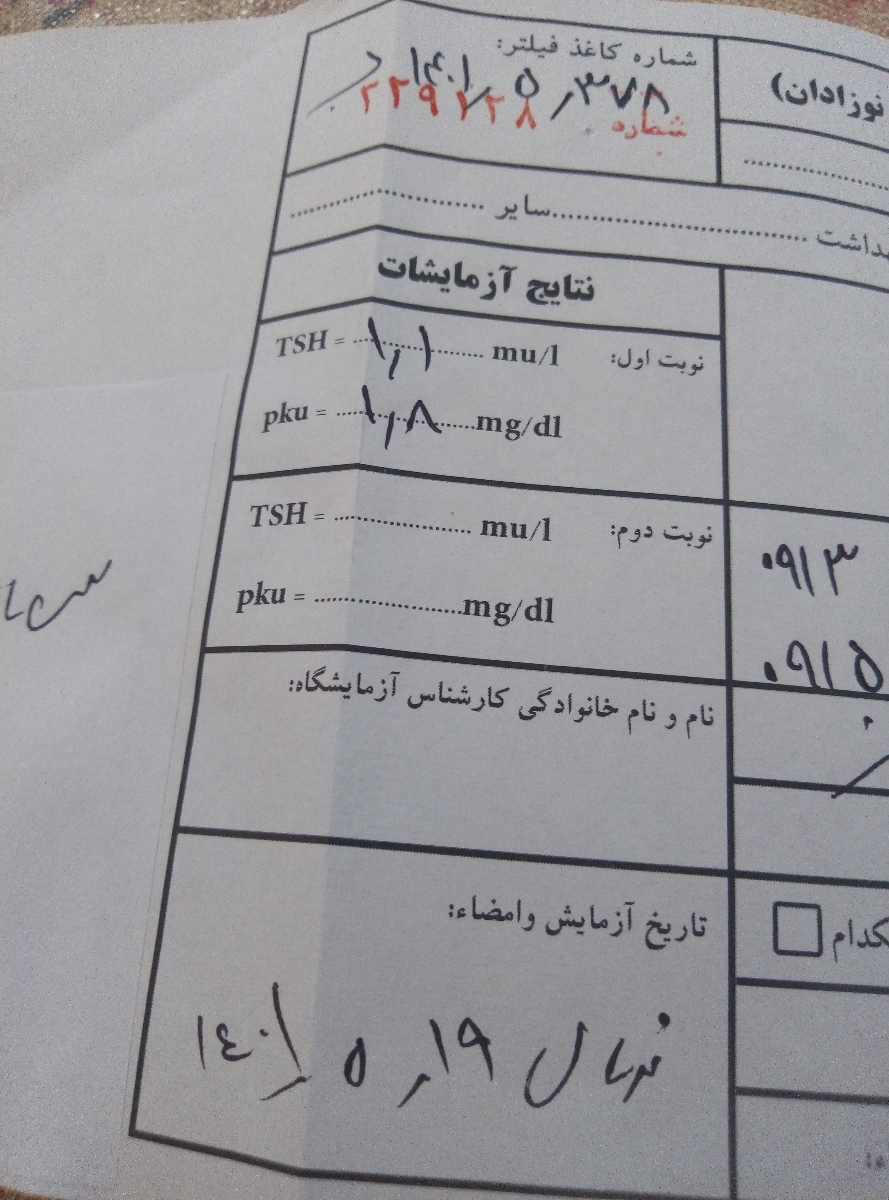 نوزادان)
شماره کاغذ فیلتر:
۱۴۰۱٫۵٫۳۷۸
شماره ۲۲۹۷۲۸
داشت ................ سایر ................
نتایج آزمایشات
نوبت اول: TSH = ۱٫۱ mu/l
pku = ۱٫۸ mg/dl
نوبت دوم: TSH = ................ mu/l
pku = ................ mg/dl
۰۹۱۳
۰۹۱۵
نام و نام خانوادگی کارشناس آزمایشگاه:
تاریخ آزمایش وامضاء:
کدام
نرمال ۱۴۰۱٫۵٫۱۹